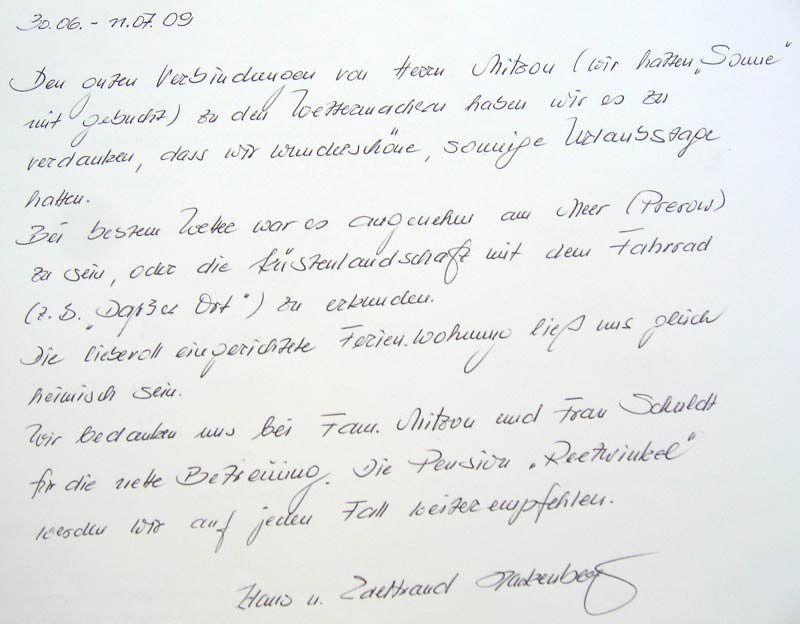 30.06. - 11.07.09
Den guten Verbindungen von Herrn Mitzon (wir hatten „Sonne“
mit gebucht) zu den Wettermachern haben wir es zu
verdanken, dass wir wunderschöne, sonnige Urlaubstage
hatten.
Bei bestem Wetter war es angenehm am Meer (Prerow)
zu sein, oder die Küstenlandschaft mit dem Fahrrad
(z.B. „Darßer Ort“) zu erkunden.
Die liebevoll eingerichtete Ferien-Wohnung ließ uns gleich
heimisch sein.
Wir bedanken uns bei Fam. Mitzon und Frau Schuldt
für die nette Betreuung. Die Pension „Reetwinkel“
werden wir auf jeden Fall weiterempfehlen.
Hans u.